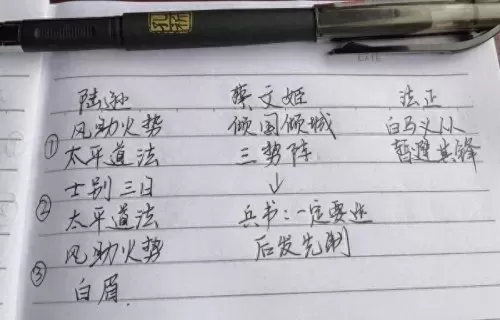 陆逊 蔡文姬 法正
风助火势 倾国倾城 白马义从
① 太平道法 三势阵 暂避其锋
士别三日 ↓
② 太平道法 兵书:一定要选
风助火势 后发先制
③
白眉
DATE